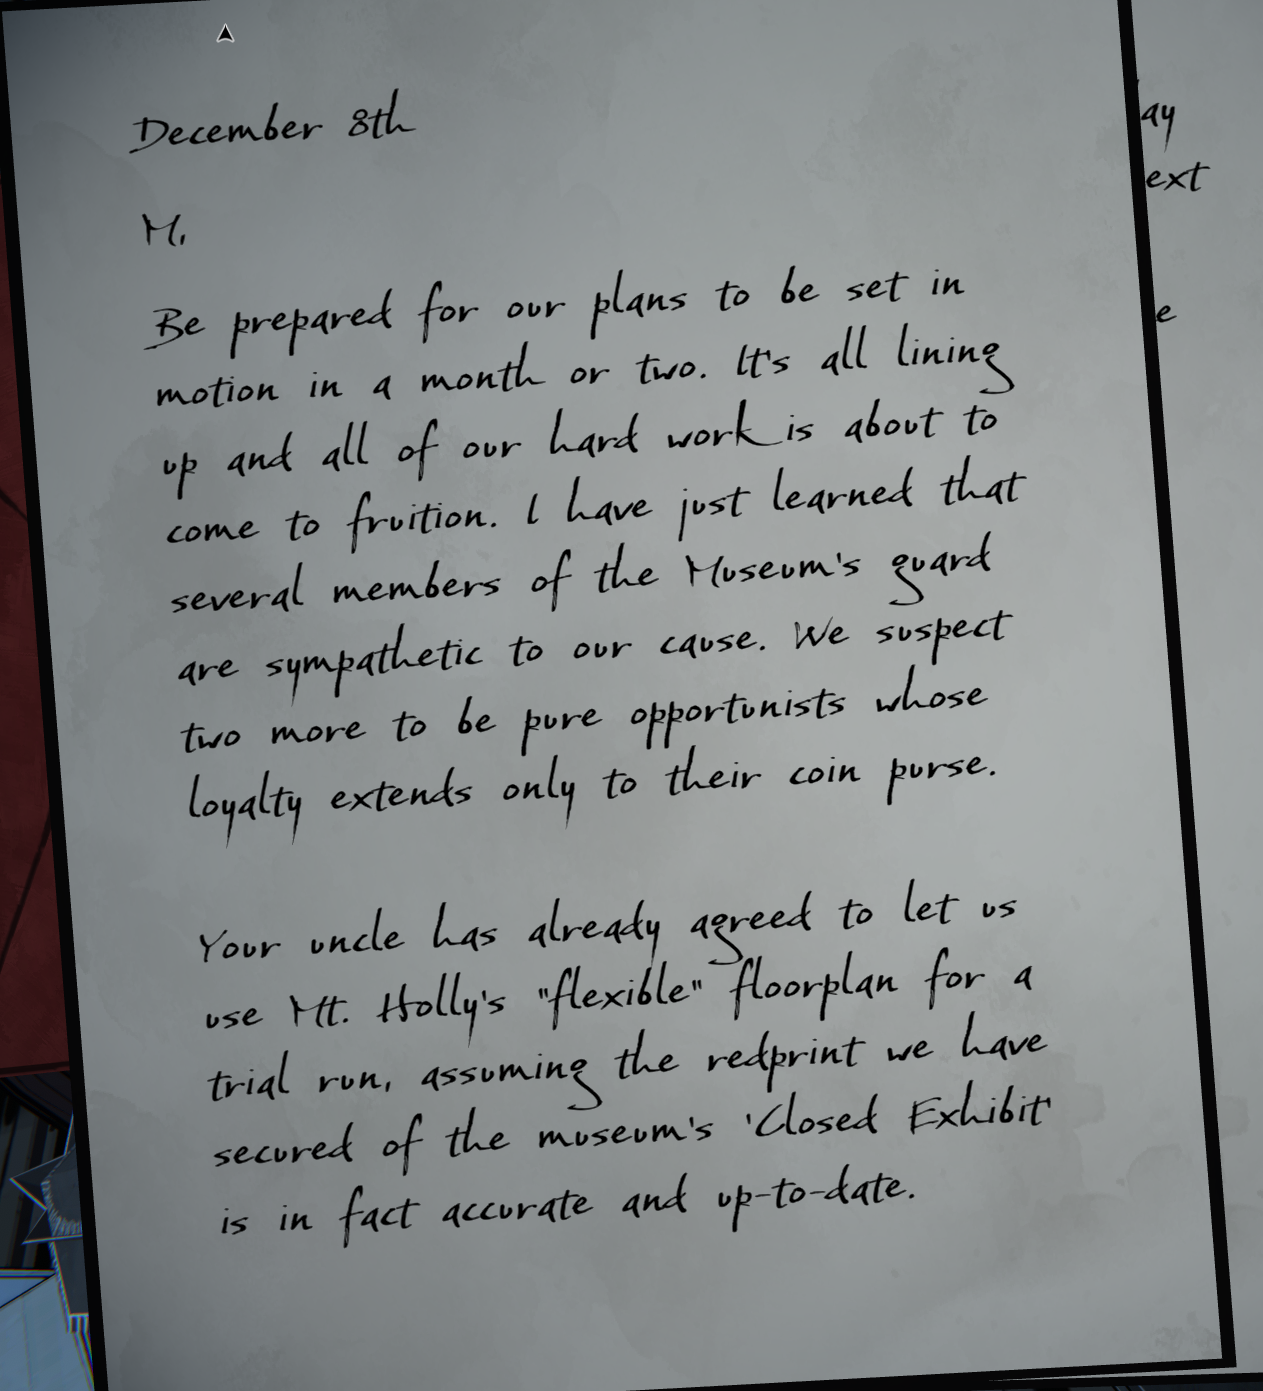 December 8th
M,
Be prepared for our plans to be set in
motion in a month or two. It's all lining
up and all of our hard work is about to
come to fruition. I have just learned that
several members of the Museum's guard
are sympathetic to our cause. We suspect
two more to be pure opportunists whose
loyalty extends only to their coin purse.
Your uncle has already agreed to let us
use Mt. Holly's "flexible" floorplan for a
trial run, assuming the redprint we have
secured of the museum's 'Closed Exhibit'
is in fact accurate and up-to-date.
ay
ext
e